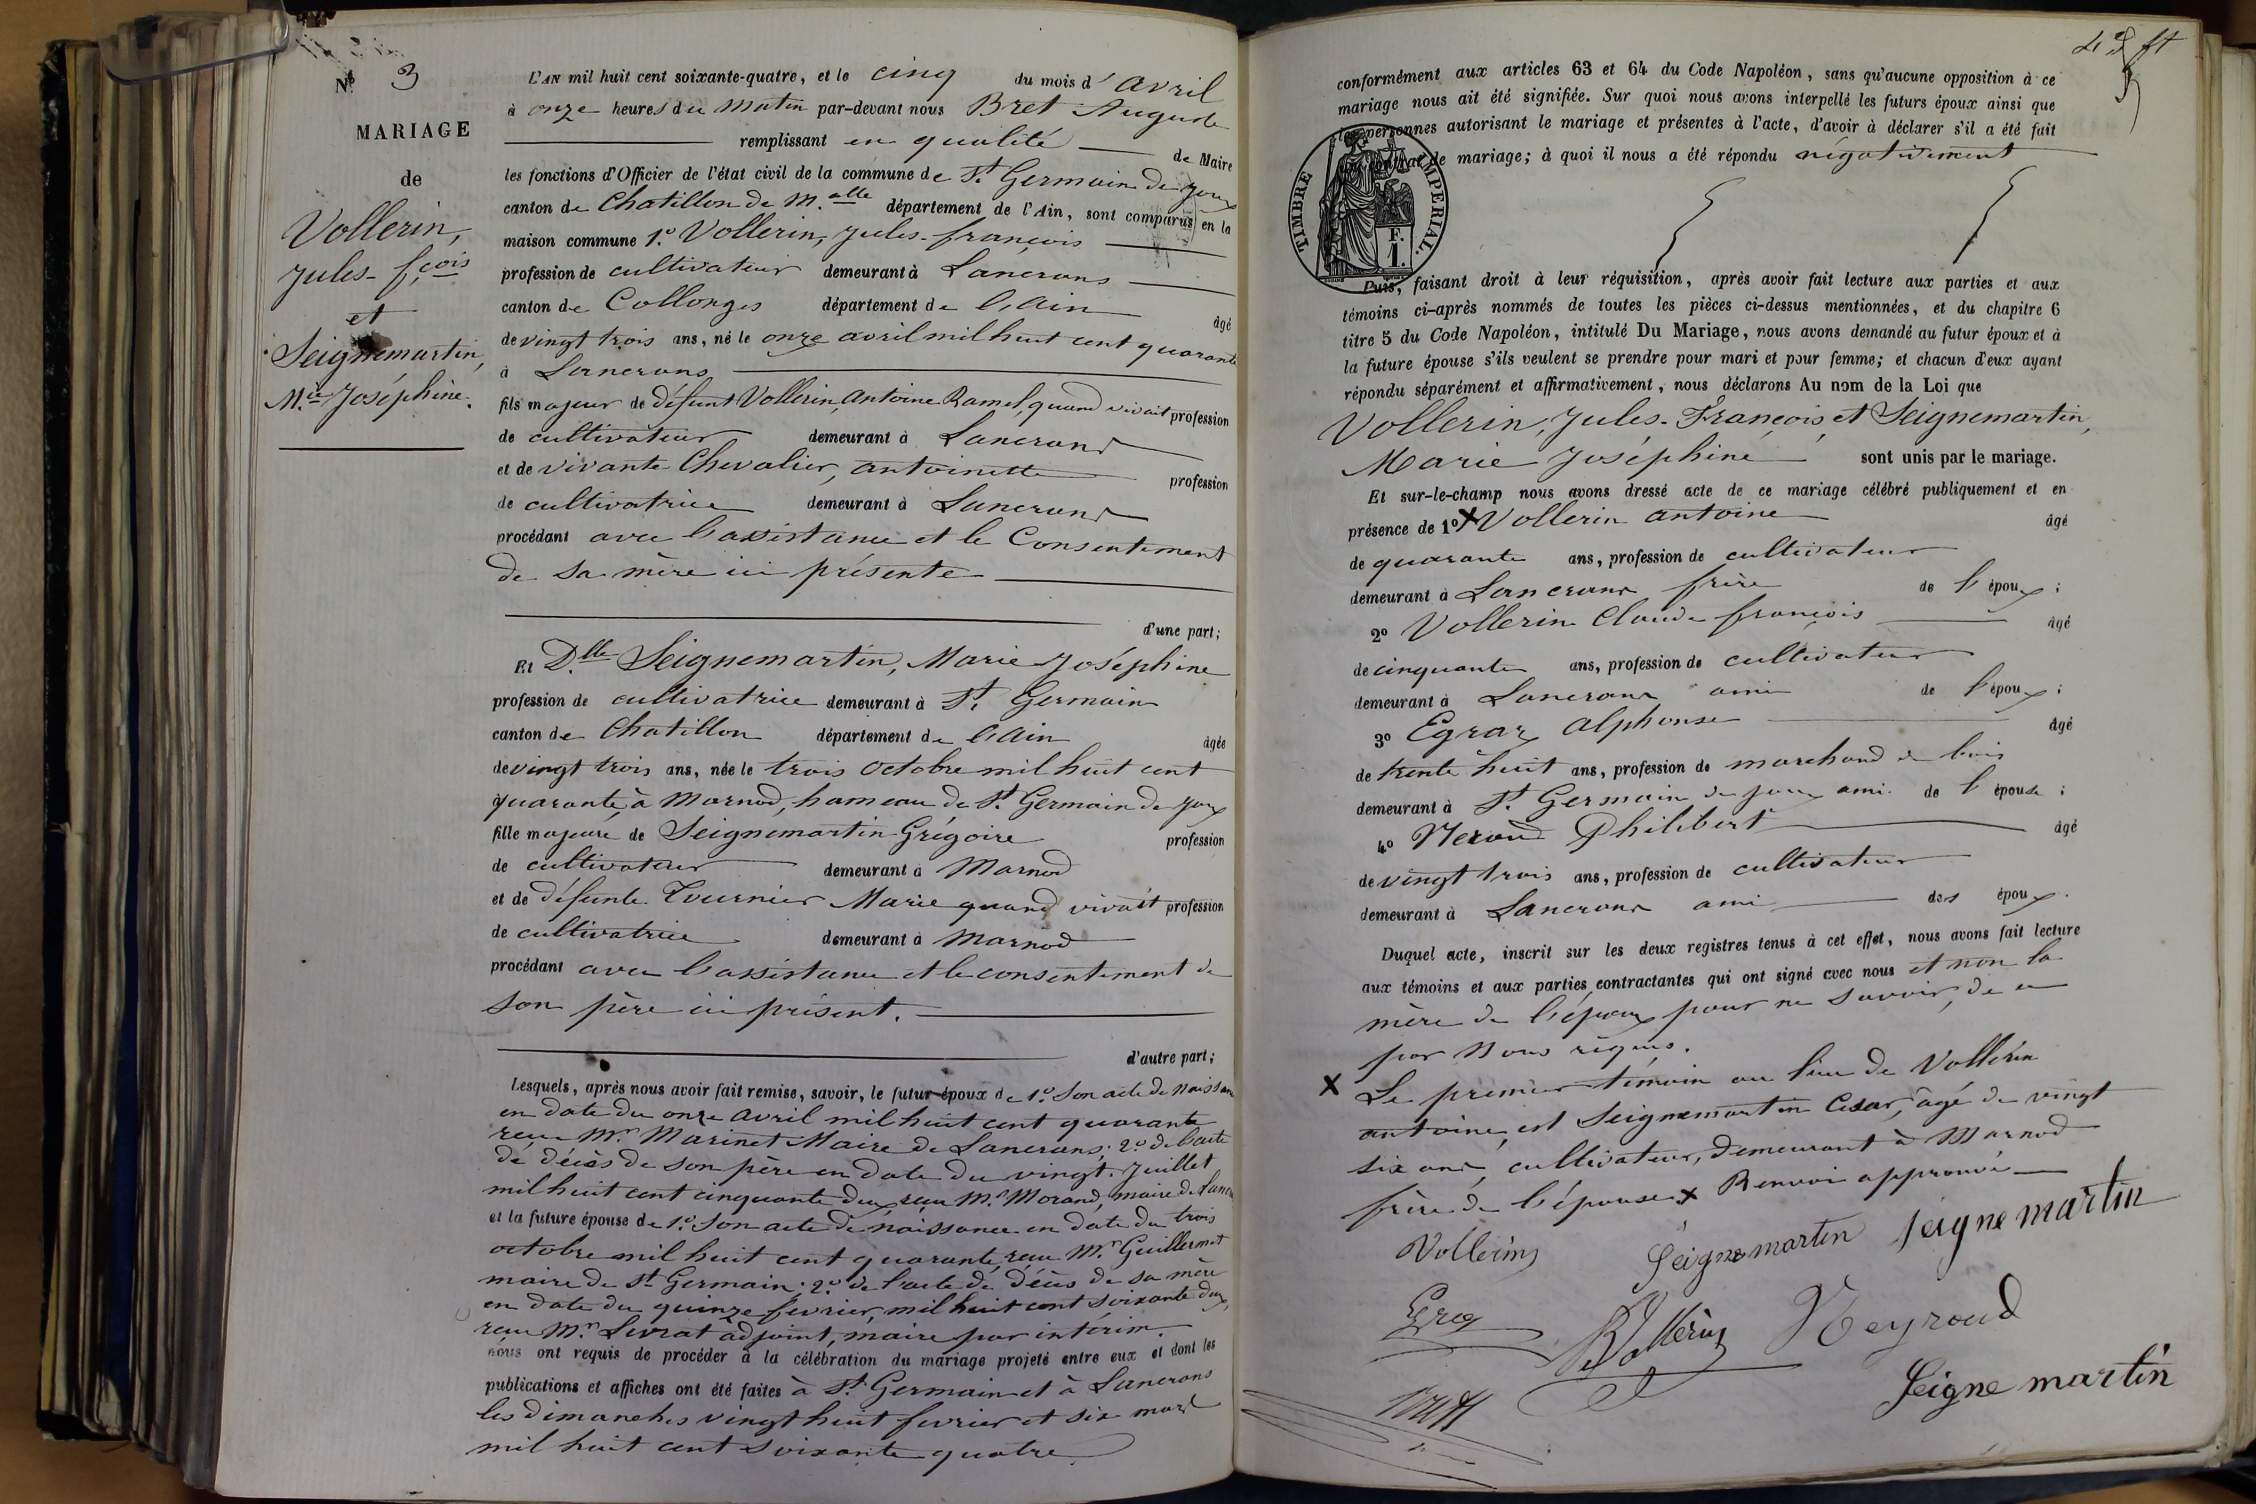 Nº 3
MARIAGE
de
Vollerin,
Jules-fçois
et
Seignemartin,
Mie Joséphine.
L'AN mil huit cent soixante-quatre, et le cinq du mois d'avril
à onze heures du matin par-devant nous Bret Auguste
remplissant en qualité de Maire
les fonctions d'Officier de l'état civil de la commune de St Germain de Joux
canton de Chatillon de M.alle département de l'Ain, sont comparus en la
maison commune 1.º Vollerin, Jules-françois
profession de cultivateur demeurant à Lancrans
canton de Collonges département de l'Ain âgé
de vingt trois ans, né le onze avril mil huit cent quarante
à Lancrans
fils majeur de défunt Vollerin, Antoine Ramel, quand vivait profession
de cultivateur demeurant à Lancrans
et de vivante Chevalier, antoinette profession
de cultivatrice demeurant à Lancrans
procédant avec l'assistance et le Consentement
de sa mère ici présente
d'une part;
Et D.lle Seignemartin, Marie Joséphine
profession de cultivatrice demeurant à St Germain
canton de Chatillon département de l'Ain âgée
de vingt trois ans, née le trois octobre mil huit cent
quarante, à Marnod, hameau de St Germain de Joux
fille majeure de Seignemartin Grégoire profession
de cultivateur demeurant à Marnod
et de défunte Tournier Marie quand vivait profession
de cultivatrice demeurant à Marnod
procédant avec l'assistance et le consentement de
son père ici présent.
d'autre part;
Lesquels, après nous avoir fait remise, savoir, le futur époux de 1.º Son acte de naissance
en date du onze avril mil huit cent quarante
reçu Mr Marinet Maire de Lancrans; 2.º de l'acte
de décès de son père en date du vingt Juillet
mil huit cent cinquante deux reçu Mr Morand, maire de Lanc
et la future épouse de 1.º Son acte de naissance en date du trois
octobre mil huit cent quarante, reçu Mr Guillermet
maire de St Germain; 2.º de l'acte de décès de sa mère
en date du quinze fevrier, mil huit cent soixante deux,
reçu Mr Livrat adjoint, maire par intérim.
nous ont requis de procéder à la célébration du mariage projeté entre eux et dont les
publications et affiches ont été faites à St Germain et à Lancrans
les dimanches vingt huit fevrier et six mars
mil huit cent soixante quatre
conformément aux articles 63 et 64 du Code Napoléon, sans qu'aucune opposition à ce
mariage nous ait été signifiée. Sur quoi nous avons interpellé les futurs époux ainsi que
les personnes autorisant le mariage et présentes à l'acte, d'avoir à déclarer s'il a été fait
contrat de mariage; à quoi il nous a été répondu négativement
TIMBRE IMPERIAL.
F.
1.
Puis, faisant droit à leur réquisition, après avoir fait lecture aux parties et aux
témoins ci-après nommés de toutes les pièces ci-dessus mentionnées, et du chapitre 6
titre 5 du Code Napoléon, intitulé Du Mariage, nous avons demandé au futur époux et à
la future épouse s'ils veulent se prendre pour mari et pour femme; et chacun d'eux ayant
répondu séparément et affirmativement, nous déclarons Au nom de la Loi que
Vollerin, Jules-François, et Seignemartin,
Marie Joséphine sont unis par le mariage.
Et sur-le-champ nous avons dressé acte de ce mariage célébré publiquement et en
présence de 1º X Vollerin antoine âgé
de quarante ans, profession de cultivateur
demeurant à Lancrans frère de l'époux;
2º Vollerin Claude françois âgé
de cinquante ans, profession de cultivateur
demeurant à Lancrans ami de l'époux;
3º Egraz Alphonse âgé
de trente huit ans, profession de marchand de bois
demeurant à St Germain de joux ami de l'épouse;
4º Neroud Philibert âgé
de vingt trois ans, profession de cultivateur
demeurant à Lancrans ami des époux.
Duquel acte, inscrit sur les deux registres tenus à cet effet, nous avons fait lecture
aux témoins et aux parties contractantes qui ont signé avec nous et non la
mère de l'époux pour ne savoir, de ce
par Nous requis.
X Le premier témoin au lieu de Vollerin
antoine, est Seignemartin César, âgé de vingt
six ans, cultivateur, demeurant à Marnod
frère de l'épouse X Renvoi approuvé
Vollerin Seignemartin Seignemartin
Egraz Vollerin Neyroud
Bret Seignemartin